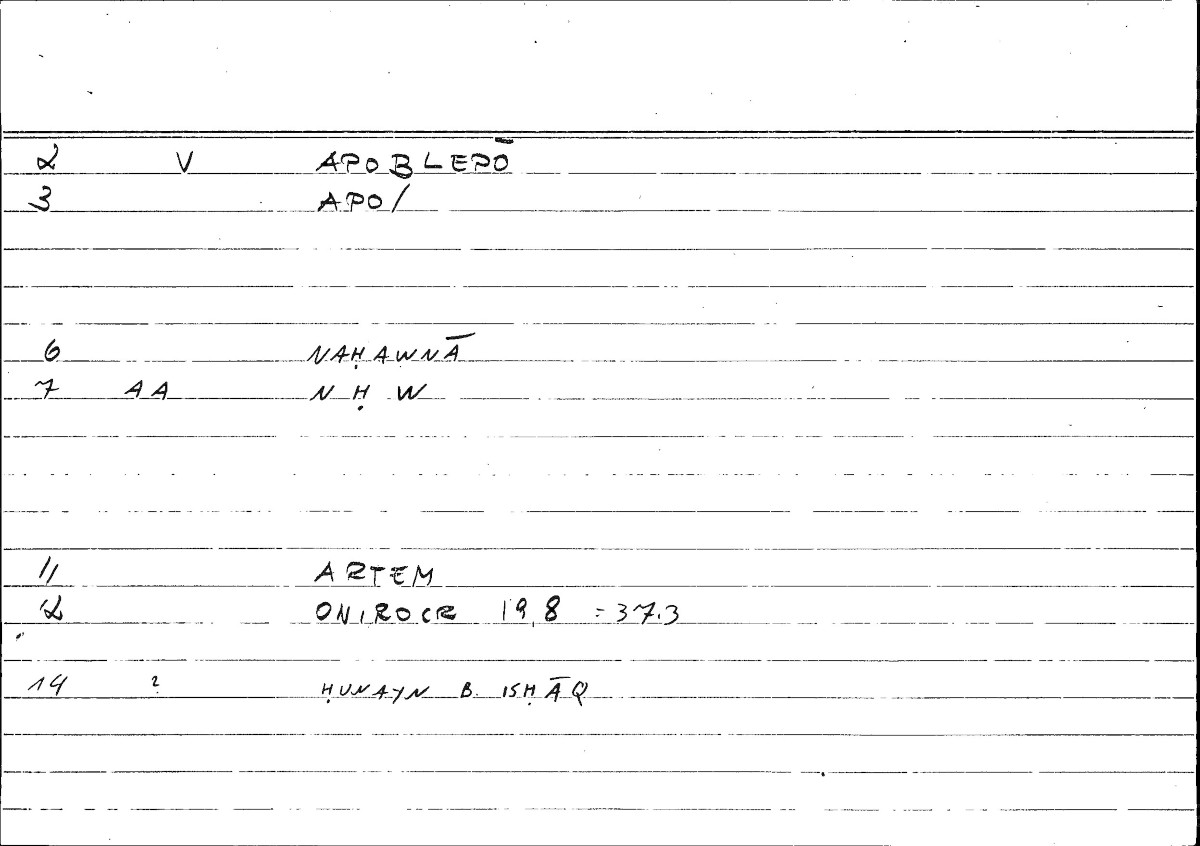 2 V APOBLEPŌ
3 APO/
6 NAḤAWNĀ
7 AA N Ḥ W
11 ARTEM
2 ONIROCR 19,8 = 37.3
14 ? ḤUNAYN B. ISḤĀQ